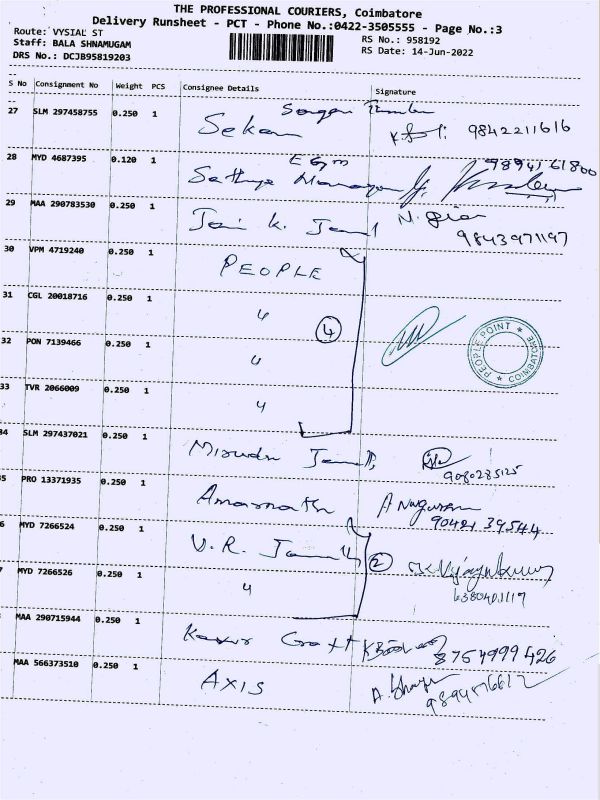 THE PROFESSIONAL COURIERS, Coimbatore
Delivery Runsheet - PCT - Phone No.:0422-3505555 - Page No.:3
Route: VYSIAL ST
RS No.: 958192
Staff: BALA SHNAMUGAM
RS Date: 14-Jun-2022
DRS No.: DCJB95819203
S No Consignment No Weight PCS Consignee Details Signature
27 SLM 297458755 0.250 1 Sekar 9842211616
28 MYD 4687395 0.120 1 Sathya 9894161800
29 MAA 290783530 0.250 1 Jain K. 9843971197
30 VPM 4719240 0.250 1 PEOPLE
31 CGL 20018716 0.250 1 "
4
PEOPLE POINT * COIMBATORE *
32 PON 7139466 0.250 1 "
33 TVR 2066009 0.250 1 "
34 SLM 297437021 0.250 1 9080285125
35 PRO 13371935 0.250 1 Amarnath 90421 39544
6 MYD 7266524 0.250 1 V.R.
2
7 MYD 7266526 0.250 1 " 6380401119
MAA 290715944 0.250 1 8754999426
MAA 566373510 0.250 1 AXIS